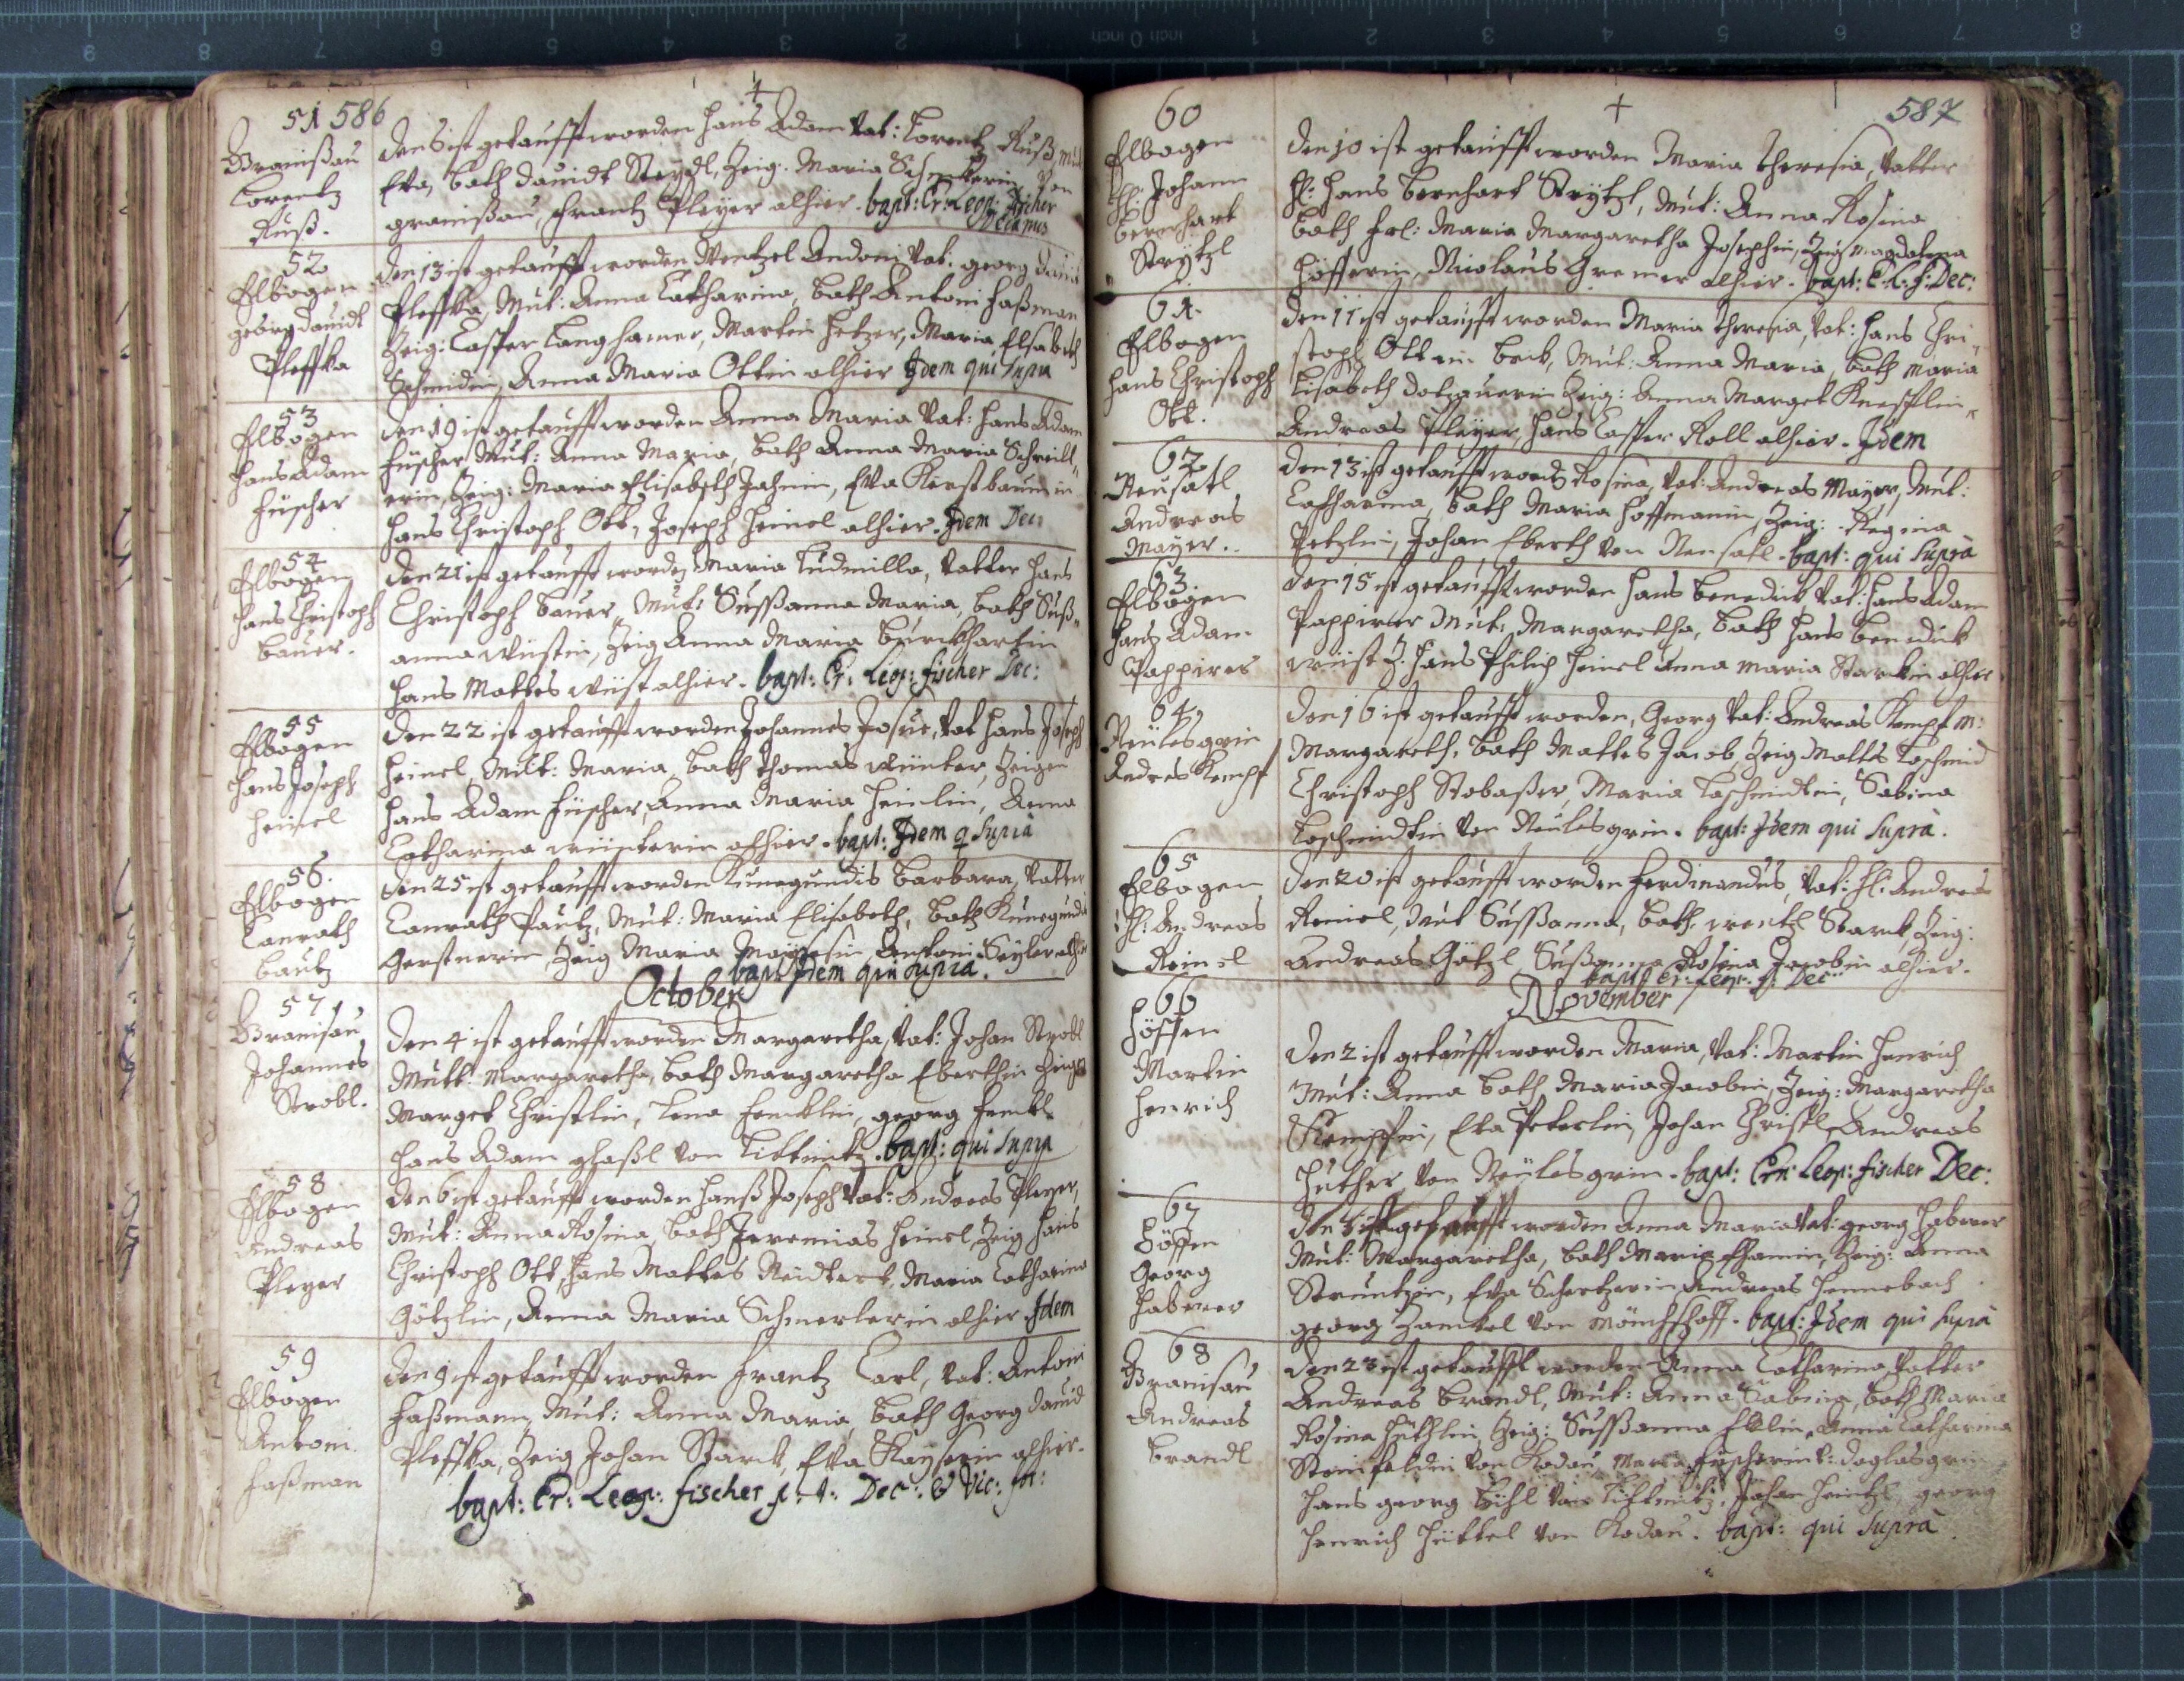 586
51
Granißau
Lorentz
Ruß.
den 5 ist getaufft worden Hans Adam Vat: Lorentz Ruß, Mut
Eva, bath Davidt Steydl, Zeig: Maria Von
Granißau, Frantz Pleyer alhier. bapt: Er: Leop: Fischer
Decanus
52
Elbogen
Georg Davidt
Pleffka
den 13 ist getaufft worden Wentzel Andoni Vat: Georg David
Pleffka, Mut: Anna Catharina, bath Antoni Faßman
Zeig: Casper Langhamer, Martin Hetzer, Maria Elsabeth
Schmidin, Anna Maria Ottin alhier Idem qui Supra
53
Elbogen
Hans Adam
Füscher
den 19 ist getaufft worden Anna Maria Vat: Hans Adam
Füscher Mut: Anna Maria, bath Anna Maria
erin, Zeig: Maria Elisabeth Jahnin, Eva Kerstbaumin
Hans Christoph Ott, Joseph Heinel alhier. Idem Dec:
54
Elbogen
Hans Christoph
Bauer.
den 21 ist getaufft worden Maria Ludmilla, Vatter Hans
Christoph Bauer, Mut: Sussanna Maria, bath Suß„
anna Wüstin, Zeig Anna Maria Burckhartin
Hans Mattes Wüst alhier. bapt: Er: Leop: fischer Dec:
55
Elbogen
Hans Joseph
Heinel
den 22 ist getaufft worden Johannes Josue, Vat Hans Joseph
Heinel, Mut: Maria, bath Thomas Winter, Zeigen
Hans Adam Füscher, Anna Maria Heinlin, Anna
Catharina Winterin alhier. bapt: Idem q Supra
56.
Elbogen
Conrath
Bautz
den 25 ist getaufft worden Kunegundis Barbara, Vatter
Conrath Pautz, Mut: Maria Elisabeth, bath Kunegundis
Gerstnerin Zeig Maria Antoni Seyler alhier
bapt Idem qui Supra.
October
57
Granisau
Johannes
Strobl.
den 4 ist getaufft worden Margaretha, Vat: Johan Strobl
Mutt: Margaretha, bath Margaretha Eberthin Zeigen
Marget Christlin, Lena Fencklin, Georg Fenckl
Hans Adam Glaßl von Tittmitz. bapt: qui Supra
58
Elbogen
Andreas
Pleyer
den 6 ist getaufft worden Hanß Joseph Vat: Andreas Pleyer,
Mut: Anna Rosina, bath Jeremias Heinel, Zeig Hans
Christoph Ott, Hans Mattes Neidtert, Maria Catharina
Götzlin, Anna Maria Schmerlerin alhier. Idem
59
Elbogen
Antoni
Faßman
den 9 ist getaufft worden Frantz Carl, Vat: Antoni
Faßmann, Mut: Anna Maria, bath Georg David
Pleffka, Zeig Johan Starck, Eva Kayserin alhier.
bapt: Er: Leop: fischer p: t: Dec: & Vic: for:
587
60
Elbogen
H: Johann
Bernhart
Strytzl
den 10 ist getaufft worden Maria Theresia, Vatter
H: Hans Bernhart Strytzl, Mut: Anna Rosina
bath Frl: Maria Margaretha Josephin, Zeig Magdalena
Höfferin, Nicolaus Gremer alhier. bapt: E: L: f: Dec:
61.
Elbogen
Hans Christoph
Ott.
den 11 ist getaufft worden Maria Theresia, Vat: Hans Chri„
stoph Ott ein Beck, Mut: Anna Maria, bath Maria
Lisabeth Zeig: Anna Marget
Andreas Pleyer, Hans Casper Roll alhier. Idem
62
Neusatl
Andreas
Mayer.
den 13 ist getaufft worden Rosina, Vat: Andreas Mayer, Mut:
Catharina, bath Maria Hoffmanin, Zeig: Regina
Petzlin, Johan Eberth von Neusatl. bapt: qui Supra
63
Elbogen
Hans Adam
Pappirer
den 15 ist getaufft worden Hans Benedict Vat: Hans Adam
Pappirer Mut: Margaretha, bath Hans Benedict
Wüst Z. Hans Philip Heinel Anna Maria Starckin alhier
64
Neulesgrin
Andres Kempf
den 16 ist getaufft worden, Georg Vat: Andreas Kempf M:
Margareth, bath Mattes Jacob, Zeig Mattes Loschmid
Christoph Stobaßer, Maria Loschmidtin, Sabina
Loschmidtin von Neulesgrin. bapt: Idem qui Supra.
65
Elbogen
H: Andreas
Reinel
den 20 ist getaufft worden Ferdinandus, Vat: H: Andreas
Reinel, Mut Sussanna, bath Wentzl Starck, Zeig:
Andreas Götzl Sußanna Rosina Jacobin alhier.
bapt Er: Leop: f: Dec:
November
66
Höffen
Martin
Henrich
den 2 ist getaufft worden Maria, Vat: Martin Henrich
Mut: Anna bath Maria Jacobin, Zeig: Margaretha
Kempfin, Eva Peterlin, Johan Christl, Andreas
Huther von Neulesgrin. bapt: Ern Leop: fischer Dec:
67
Höffen
Georg
Haberer
den 5 ist getaufft worden Anna Maria Vat: Georg Haberer
Mut: Margaretha, bath Maria Zeig: Anna
Struntzin, Eva Schertzerin Andreas Hennebach
Georg Hanckel von Mönchshoff. bapt: Idem qui supra
68
Granisau
Andreas
Brandl
den 23 ist getaufft worden Anna Catharina, Vatter
Andreas Brandl, Mut: Anna Sabina, bath Maria
Rosina Hüthlin, Zeig: Sussanna Anna Catharina
Steinfeldin von Kodau, Maria Fuscherin v: Doglasgrin
Hans Georg Bihl von Tittmitz, Johan Heintzl Georg
Henrich Hüttel von Kodau. bapt: qui Supra